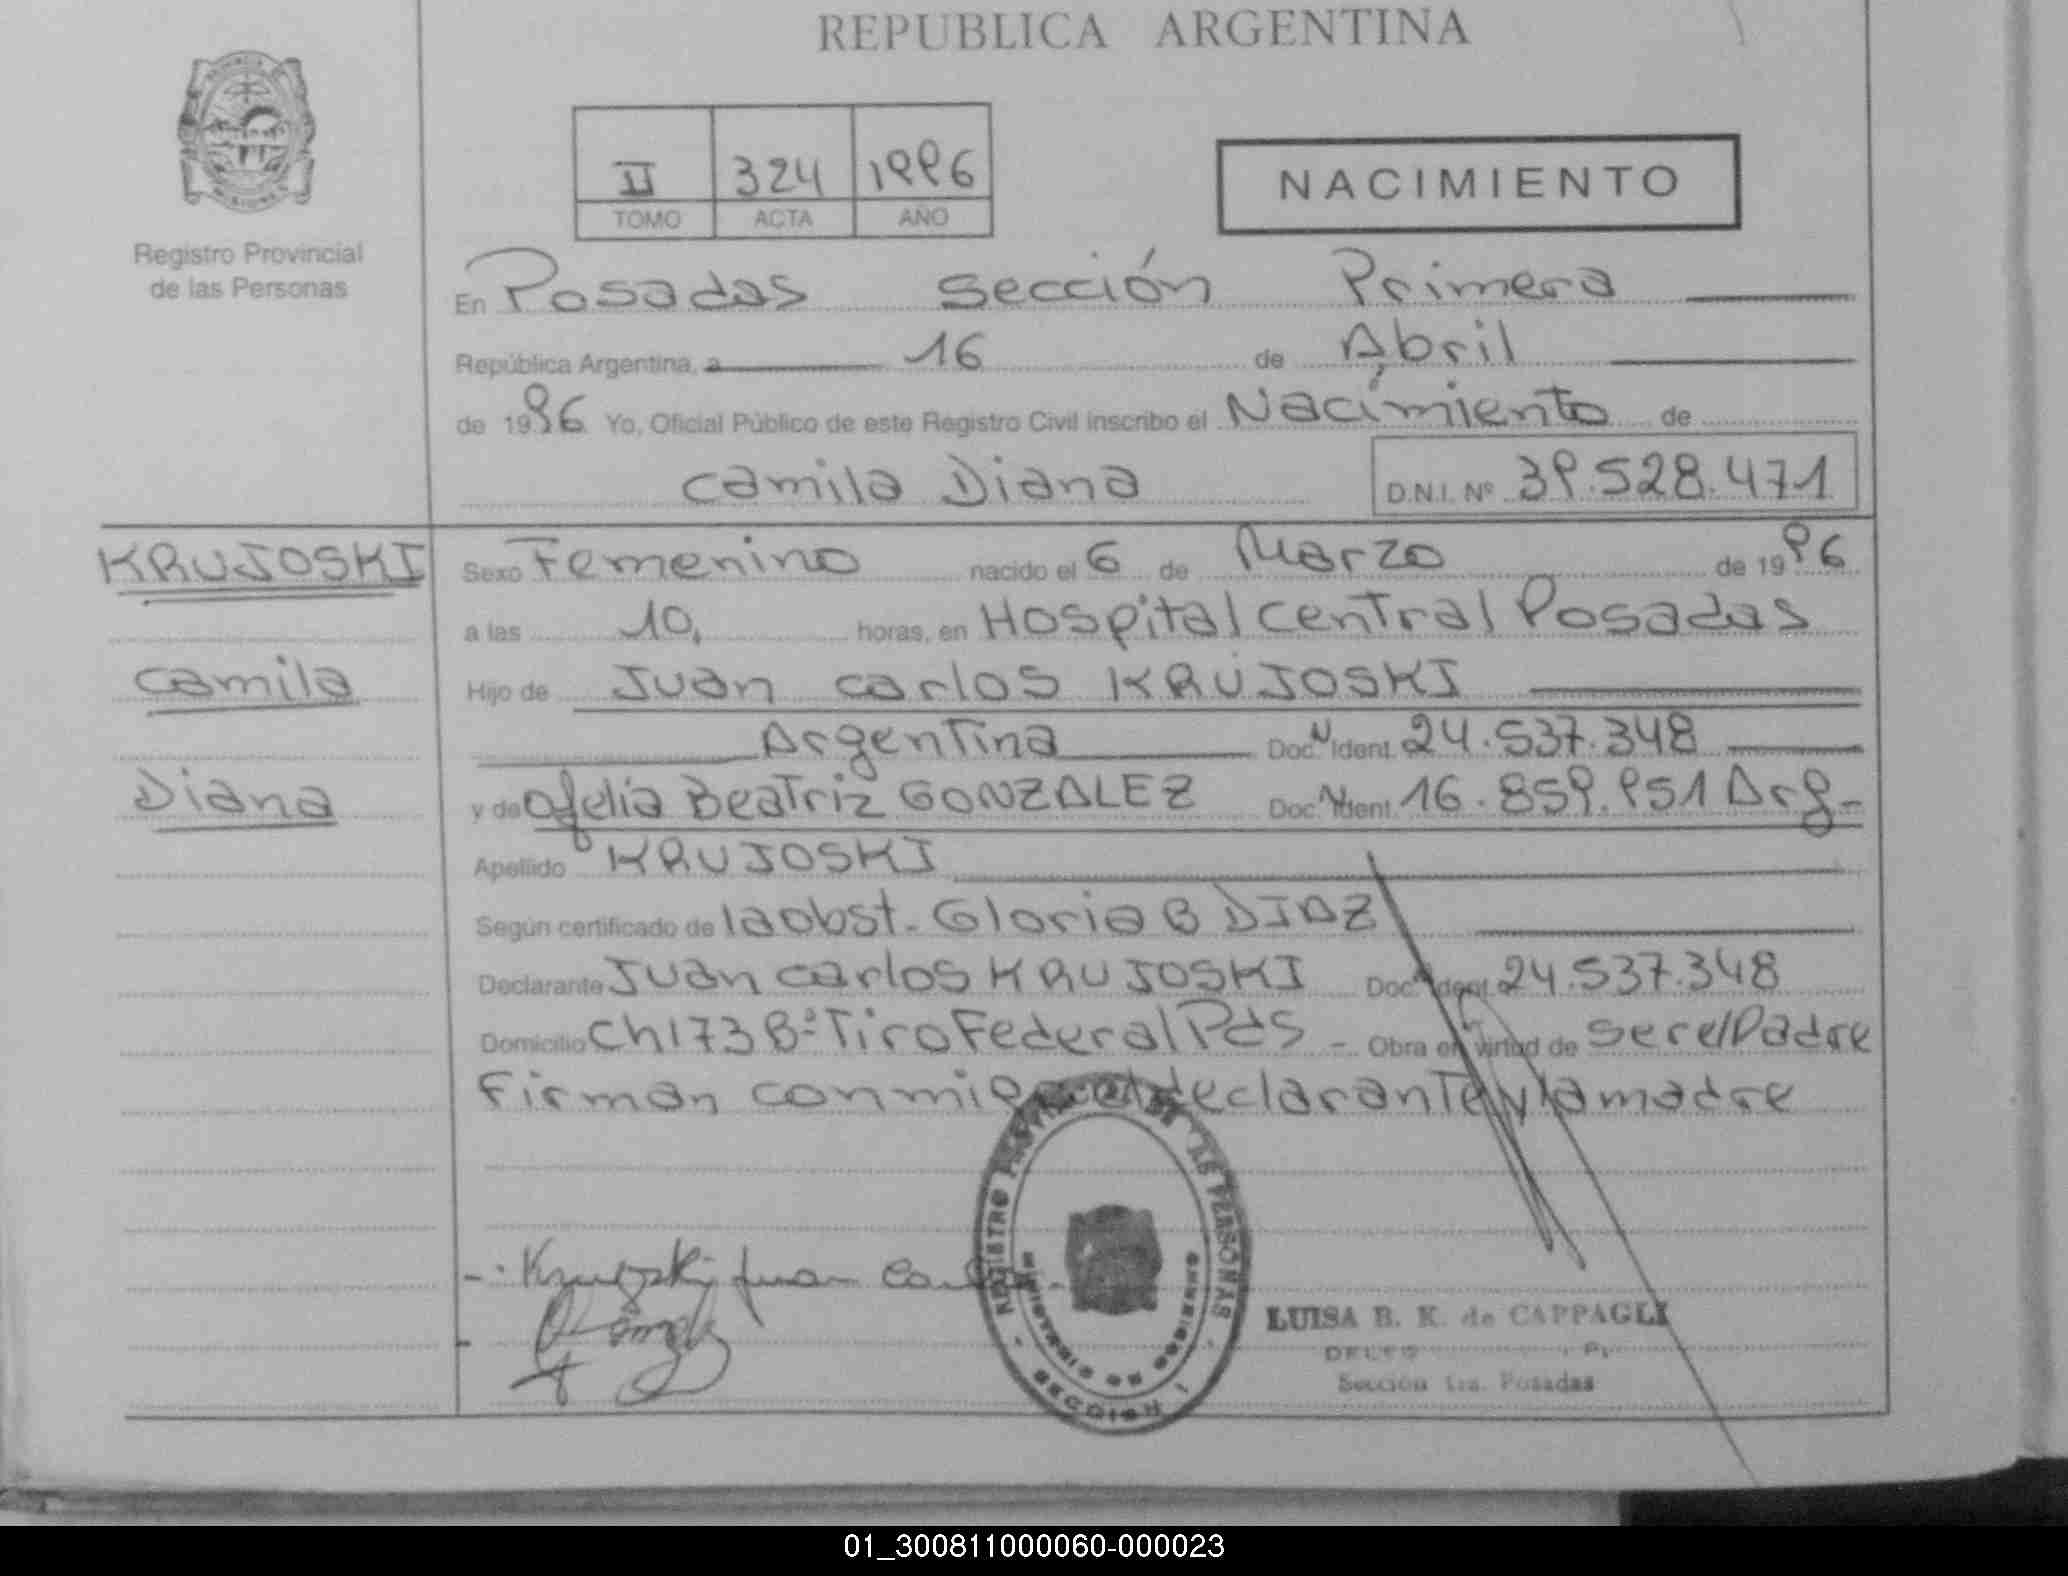 REPUBLICA ARGENTINA
II 324 1996
TOMO ACTA AÑO
NACIMIENTO
Registro Provincial
de las Personas
En Posadas sección Primera
República Argentina, a 16 de Abril
de 1996 Yo, Oficial Público de este Registro Civil inscribo el Nacimiento de
Camila Diana D.N.I. Nº 39.528.471
KRUJOSKI
Camila
Diana
Sexo Femenino nacido el 6 de Marzo de 1996
a las 10, horas, en Hospital Central Posadas
Hijo de Juan Carlos KRUJOSKI
Argentina Doc. Ident. 24.537.348
y de Ofelia Beatriz GONZALEZ Doc. Ident. 16.859.951 Arg-
Apellido KRUJOSKI
Según certificado de la obst. Gloria B DIAZ
Declarante Juan Carlos KRUJOSKI Doc. Ident. 24.537.348
Domicilio Ch173 Bº Tiro Federal Pds - Obra en virtud de ser el Padre
Firman conmigo el declarante y la madre
Krujoski Juan
REGISTRO DE LAS PERSONAS
MINISTERIO DE GOBIERNO
SECCION 1
LUISA B. K. de CAPPAGLI
Sección 1ra. Posadas
01_300811000060-000023